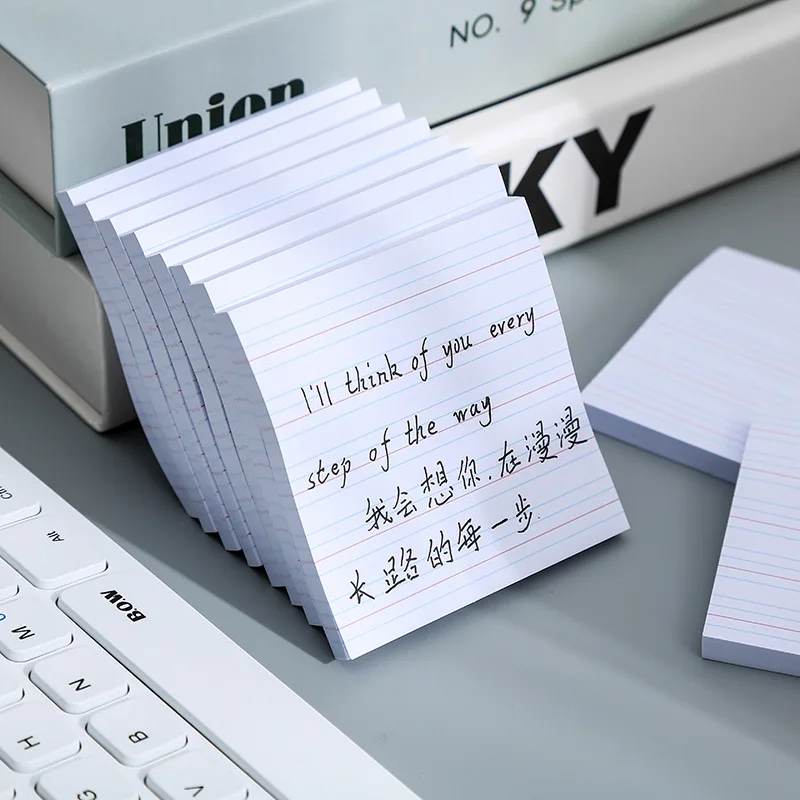 NO. 9 Sp
Union
KY
I'll think of you every
step of the way
我会想你.在漫漫
长路的每一步.
Alt
BOW
M
N
B
V
H
G